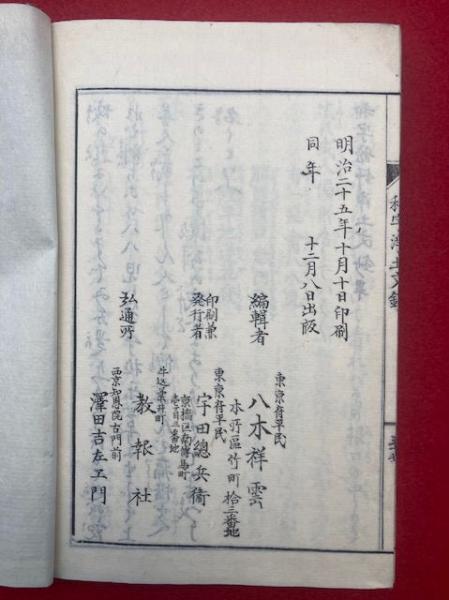 明治二十五年十月十日印刷
同年 十二月八日出版
編輯者
東京府平民
八木祥雲
本所區竹町拾三番地
印刷兼
発行者
東京府平民
宇田總兵衛
京橋区南傳馬町
壱丁目三番地
弘通所
牛込薬井町
教報社
西京知恩院古門前
澤田吉左エ門